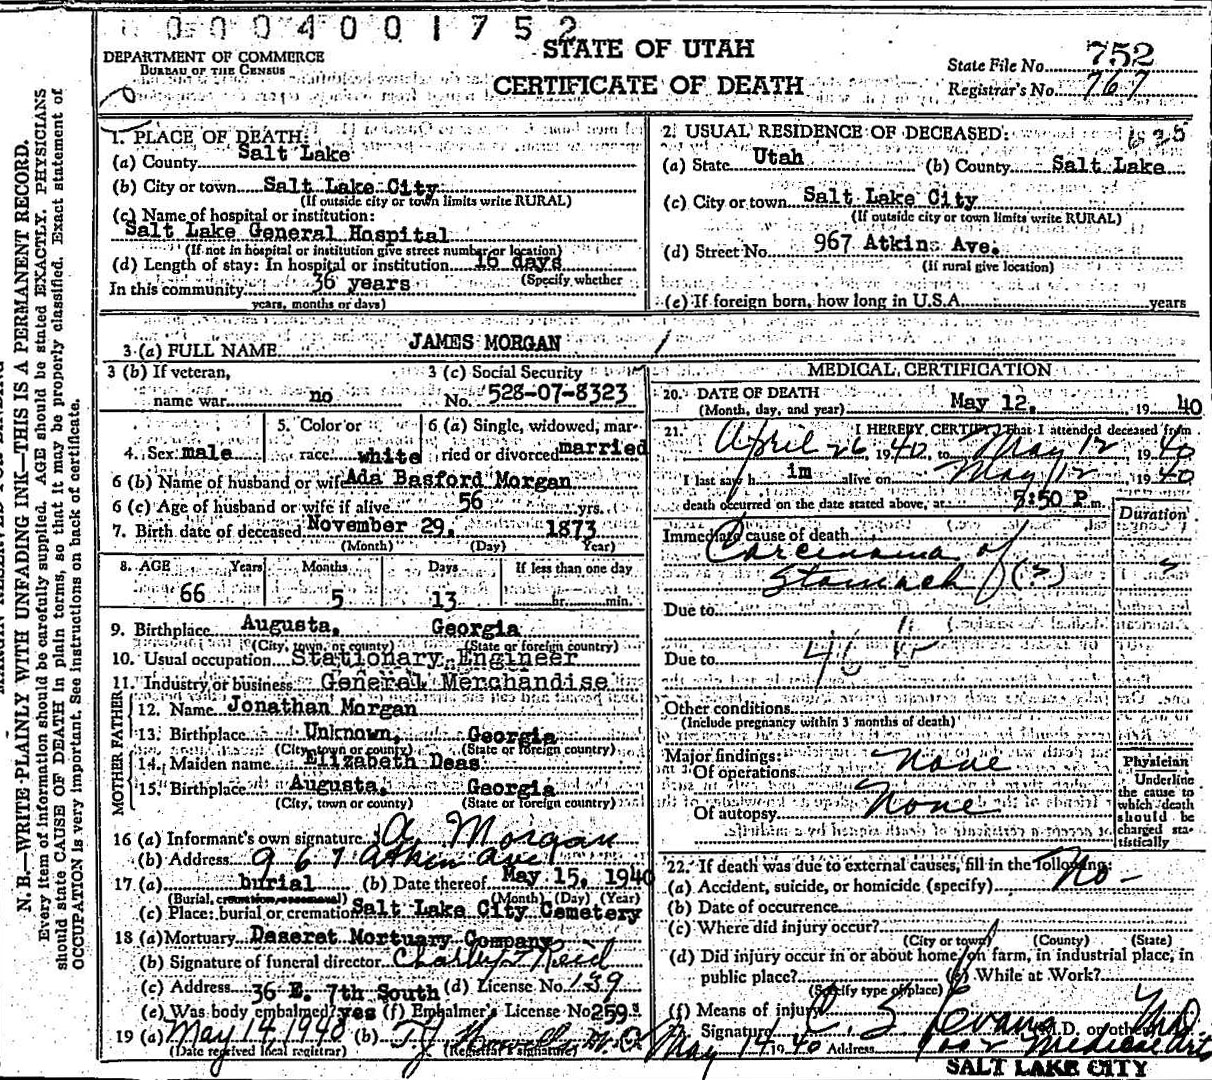 0004001752
DEPARTMENT OF COMMERCE
BUREAU OF THE CENSUS
STATE OF UTAH
CERTIFICATE OF DEATH
State File No. 752
Registrar's No. 767
N. B.—WRITE PLAINLY WITH UNFADING INK—THIS IS A PERMANENT RECORD.
Every item of information should be carefully supplied. AGE should be stated EXACTLY. PHYSICIANS
should state CAUSE OF DEATH in plain terms, so that it may be properly classified. Exact statement of
OCCUPATION is very important. See instructions on back of certificate.
1. PLACE OF DEATH:
(a) County Salt Lake
(b) City or town Salt Lake City
(If outside city or town limits write RURAL)
(c) Name of hospital or institution:
Salt Lake General Hospital
(If not in hospital or institution give street number or location)
(d) Length of stay: In hospital or institution 16 days
(Specify whether
In this community 36 years
years, months or days)
2. USUAL RESIDENCE OF DECEASED:
(a) State Utah (b) County Salt Lake
(c) City or town Salt Lake City
(If outside city or town limits write RURAL)
(d) Street No. 967 Atkins Ave.
(If rural give location)
(e) If foreign born, how long in U.S.A. years
3 (a) FULL NAME JAMES MORGAN
3 (b) If veteran,
name war no
3 (c) Social Security
No. 528-07-8323
4. Sex male
5. Color or
race white
6 (a) Single, widowed, mar-
ried or divorced married
6 (b) Name of husband or wife Ada Basford Morgan
6 (c) Age of husband or wife if alive 56 yrs.
7. Birth date of deceased November 29, 1873
(Month) (Day) Year)
8. AGE Years Months Days If less than one day
66 5 13 hr. min.
9. Birthplace Augusta, Georgia
(City, town, or county) (State or foreign country)
10. Usual occupation Stationary Engineer
11. Industry or business General Merchandise
FATHER
12. Name Jonathan Morgan
13. Birthplace Unknown, Georgia
(City, town or county) (State or foreign country)
MOTHER
14. Maiden name Elizabeth Deas
15. Birthplace Augusta, Georgia
(City, town or county) (State or foreign country)
16 (a) Informant's own signature A Morgan
(b) Address 967 Atkin Ave
17 (a) burial (b) Date thereof May 15, 1940
(Burial, cremation, removal) (Month) (Day) (Year)
(c) Place: burial or cremation Salt Lake City Cemetery
18 (a) Mortuary Deseret Mortuary Company
(b) Signature of funeral director Reid
(c) Address 36 E. 7th South (d) License No. 139
(e) Was body embalmed? yes (f) Embalmer's License No. 259
19 (a) May 14, 1940 (b)
(Date received local registrar) (Registrar's signature)
MEDICAL CERTIFICATION
20. DATE OF DEATH
(Month, day, and year) May 12, 19 40
21. I HEREBY CERTIFY That I attended deceased from
April 26 1940, to May 12 1940
I last saw h im alive on May 12 1940
death occurred on the date stated above, at 5:50 P m.
Duration
Immediate cause of death
Carcinoma of
Stomach (?)
Due to
46 b
Due to
Other conditions
(Include pregnancy within 3 months of death)
Major findings:
Of operations None
Of autopsy None
Physician
Underline
the cause to
which death
should be
charged sta-
tistically
22. If death was due to external causes, fill in the following:
(a) Accident, suicide, or homicide (specify) No -
(b) Date of occurrence
(c) Where did injury occur?
(City or town) (County) (State)
(d) Did injury occur in or about home, on farm, in industrial place, in
public place? (e) While at Work?
(Specify type of place)
(f) Means of injury
Signature Evans M.D. or other M.D.
May 14 1940 Address Medical Arts
SALT LAKE CITY